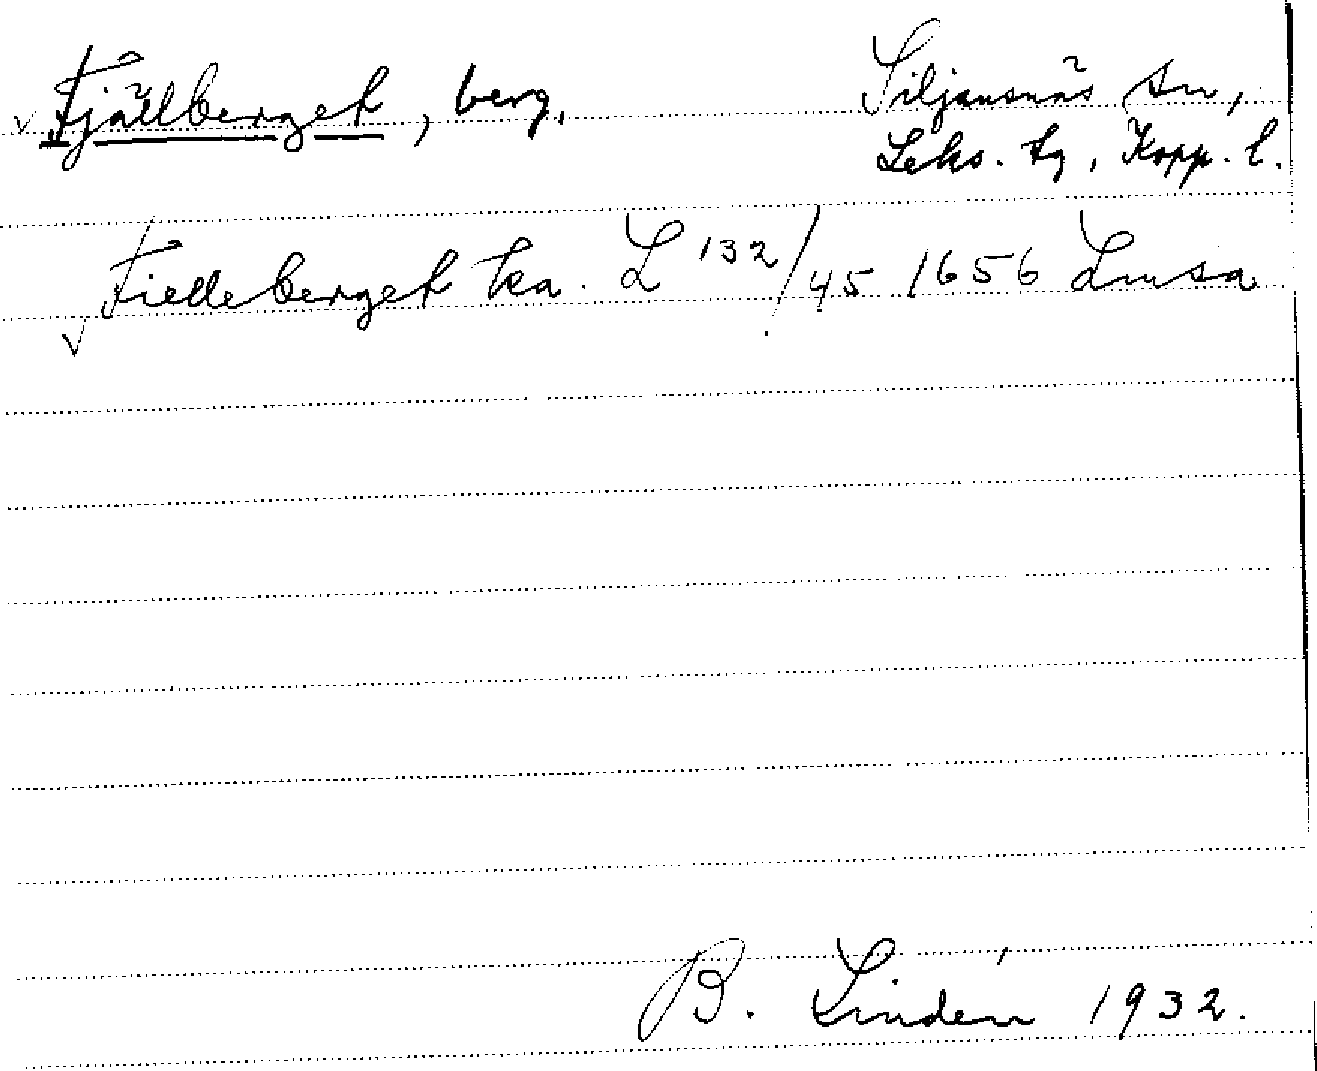 Fjällberget, berg. Siljansnäs sn,
Leks. tg, Kopp. l.
Fielleberget ka. L 132/45 1656 Lmsa
B. Lindén 1932.